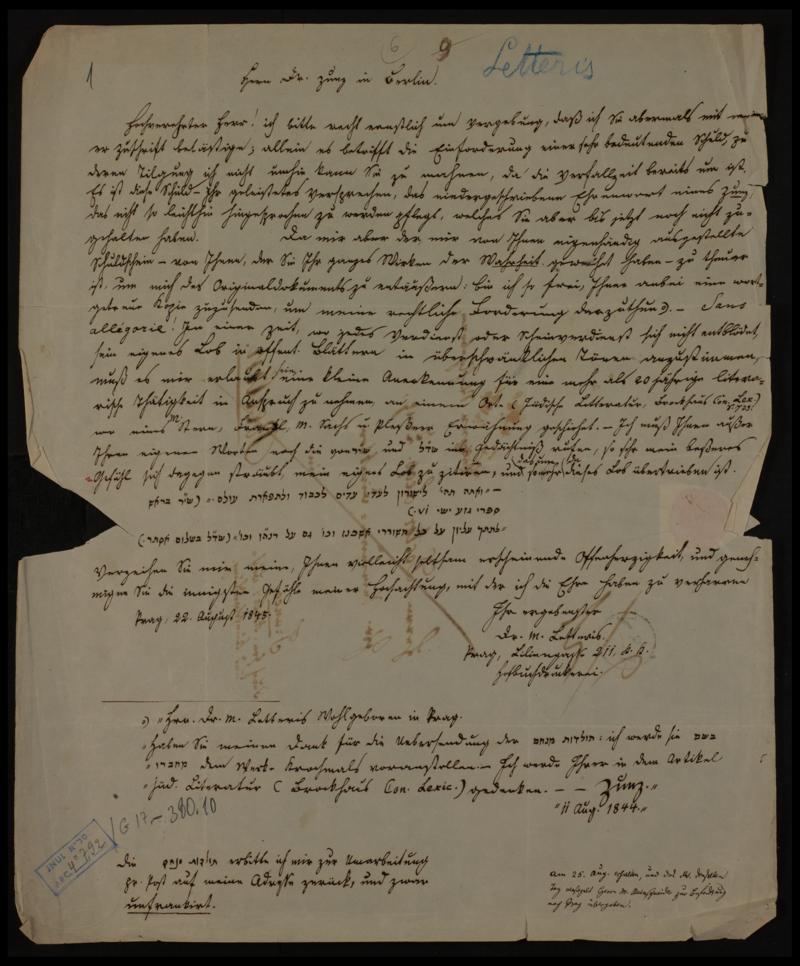 1
6
9
Letteris
Herrn Dr. Zunz in Berlin.
Hochverehrter Herr! ich bitte recht ernstlich um Vergebung, daß ich Sie abermals mit
er Zuschrift belästige; allein es betrifft die Einforderung einer sehr bedeutenden Schuld, zu
deren Tilgung ich nicht umhin kann Sie zu mahnen, da die Verfallzeit bereits um ist.
Es ist diese Schuld – Ihr geleistetes Versprechen, das niedergeschriebene Ehrenwort eines Zunz,
das nicht so leichthin hingesprochen zu werden pflegt, welches Sie aber bis jetzt noch nicht zu-
gehalten haben. Da mir aber der mir von Ihnen eigenhändig ausgestellte
Schuldschein – von Ihnen, der Sie Ihr ganzes Wirken der Wahrheit geweihet haben – zu theuer
ist, um mich des Originaldokuments zu entäußern: bin ich so frei, Ihnen anbei eine wort-
getreue Kopie zuzusenden, um meine rechtliche Forderung darzuthun ͽ. – Sans
allégorie! In einer Zeit, wo jedes Verdienst oder Scheinverdienst sich nicht entblödet,
sein eigenes Lob in öffent. Blättern in überschwänklichen Tönen anzustimmen,
muß es mir erlaubt sein eine kleine Anerkennung für eine mehr als 20 jährige litera-
rische Thätigkeit in Anspruch zu nehmen, an einem Orte (Jüdische Litteratur, Brockhaus Con. Lex.)
wo eines M Stern, Frankl, M. Sachs u Pleßner Erwähnung geschieht. – Ich muß Ihnen außer
Ihren eigenen Worten noch die und שד״ל ins Gedächtniß rufen, so sehr mein besseres
Gefühl sich dagegen sträubt, mein eigenes Lob zu zitiren, und so sehr dieses Lob übertrieben ist.
„ואתה תהי׳ לישורון לעדי עדים לכבוד ולתפארת עולם.“ (שי״ר בראש
ספרי גזע ישי VI.)
Verzeihen Sie mir meine, Ihnen vielleicht seltsam erscheinende Offenherzigkeit, und geneh-
migen Sie die innigsten Gefühle meiner Hochachtung, mit der ich die Ehre habe zu verharren
Prag, 22. August 1845.
Ihr ergebenster
Dr. M. Letteris.
Prag, Liliengasse 211. k. k.
Hofbuchdruckerei.
ͽ) „Hrn. Dr. M. Letteris Wohlgeboren in Prag.
„Haben Sie meinen Dank für die Uebersendung der תולדות מנחם: ich werde sie בשם
„מחברו dem Werke Krochmals voranstellen. – Ich werde Ihrer in dem Artikel
„jüd. Literatur (Brockhaus Con. Lexic.) gedenken. – – Zunz.“
„11 Aug. 1844.“
G 17 – 380.10
ARC 4° 792
Die תולדות מנחם erbitte ich mir zur Umarbeitung
pr. Post auf meine Adresse zurück, und zwar
unfrankirt.
Am 25. Aug. erhalten, und
Tag Herrn M. zur Beförderung
nach Prag übergeben.